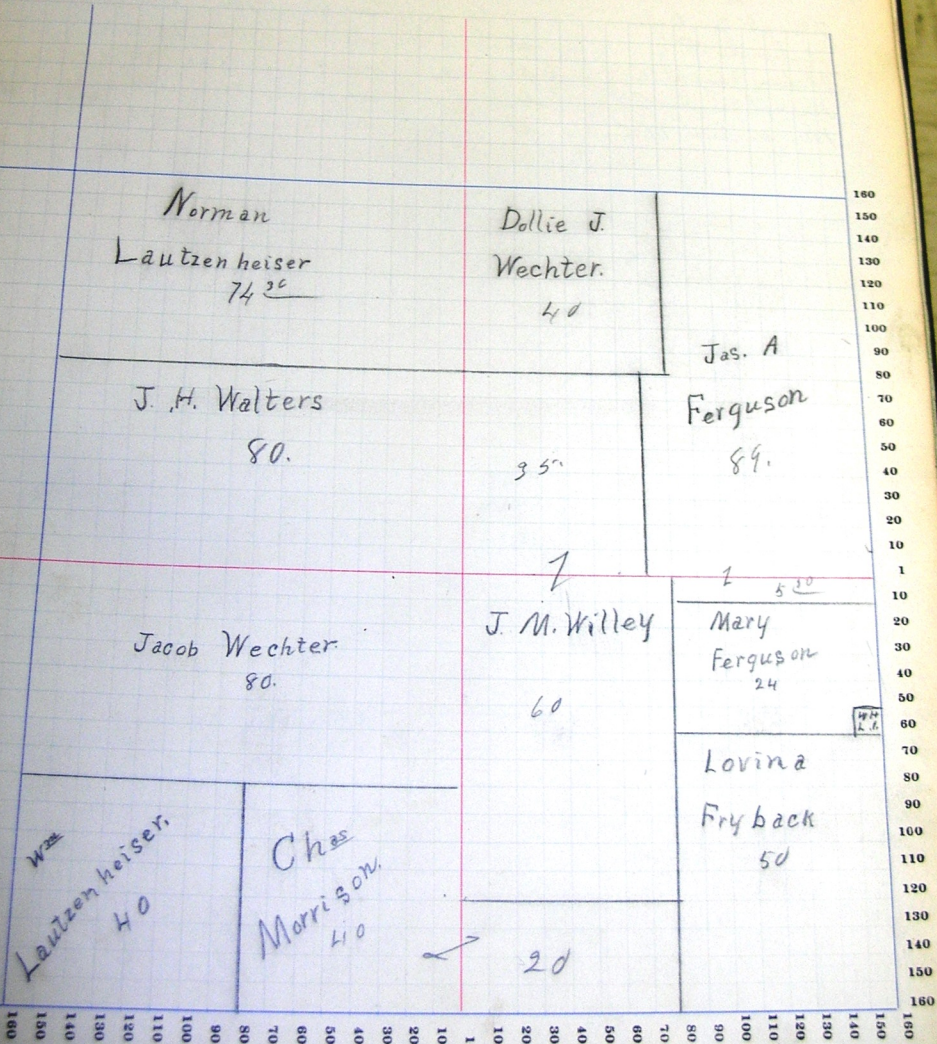 Norman
Lautzenheiser
74
Dollie J.
Wechter.
40
Jas. A
Ferguson
89.
J. H. Walters
80.
35
1
J. M. Willey
60
Jacob Wechter.
80.
Mary
Ferguson
24
Lovina
Fryback
50
Wm
Lautzenheiser.
40
Chas
Morrison.
40
20
160
150
140
130
120
110
100
90
80
70
60
50
40
30
20
10
1
10
20
30
40
50
60
70
80
90
100
110
120
130
140
150
160
160 150 140 130 120 110 100 90 80 70 60 50 40 30 20 10 1 10 20 30 40 50 60 70 80 90 100 110 120 130 140 150 160